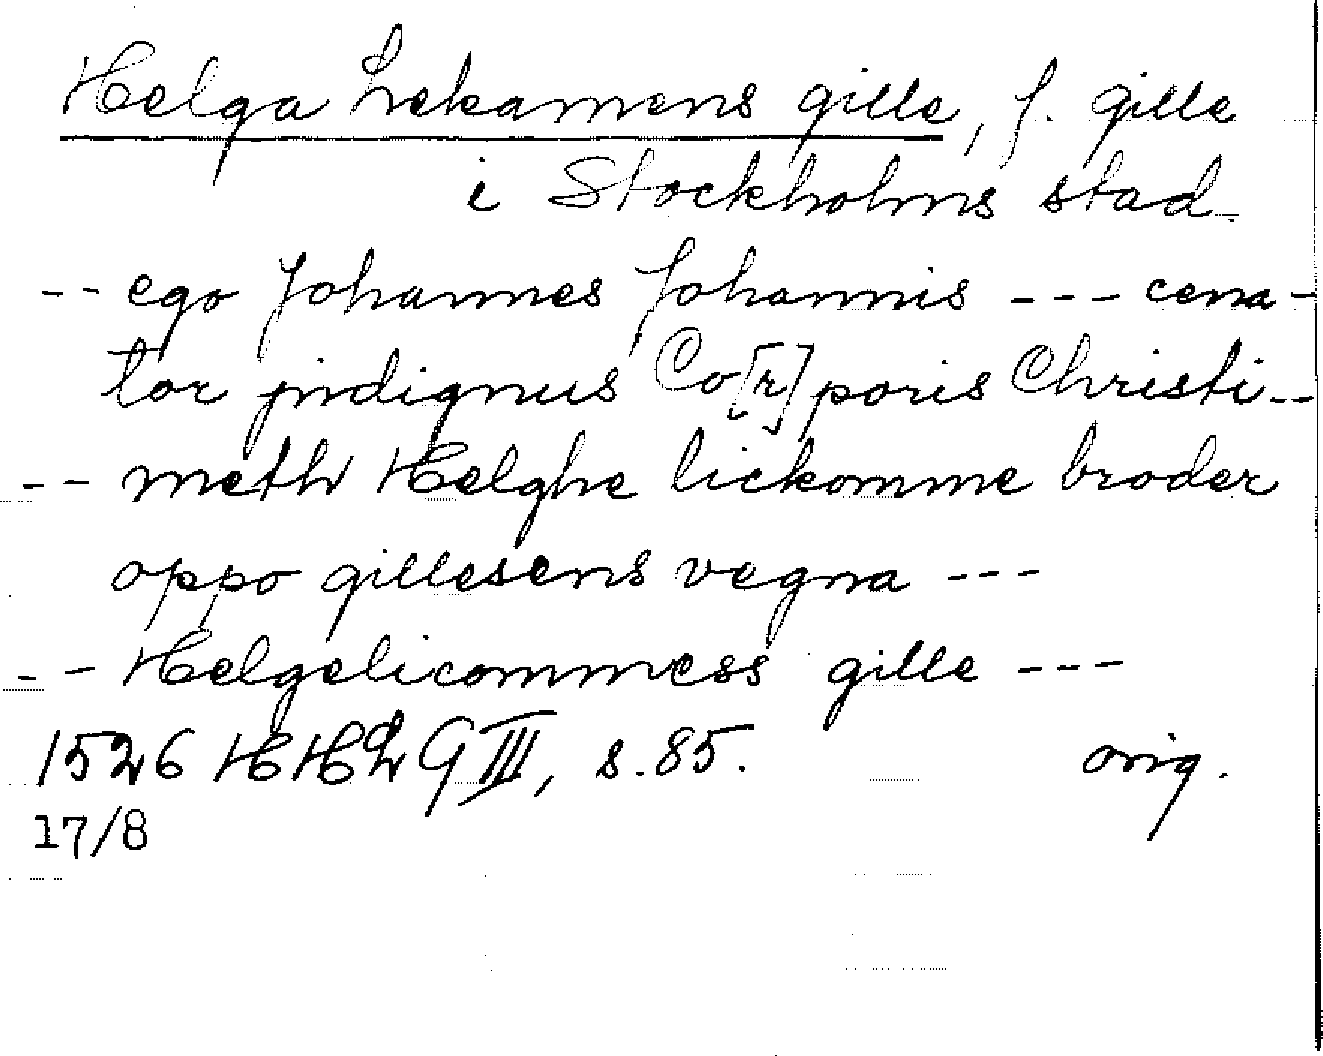 Helga Lekamens gille, f. gille
i Stockholms stad.
-- ego Johannes Johannis --- cena-
tor jndignus Co[r]poris Christi --
-- meth Helghe lickomme broder
oppo gillesens vegna ---
-- Helgelicommess gille ---
1526 HHLG III, s. 85. orig.
17/8